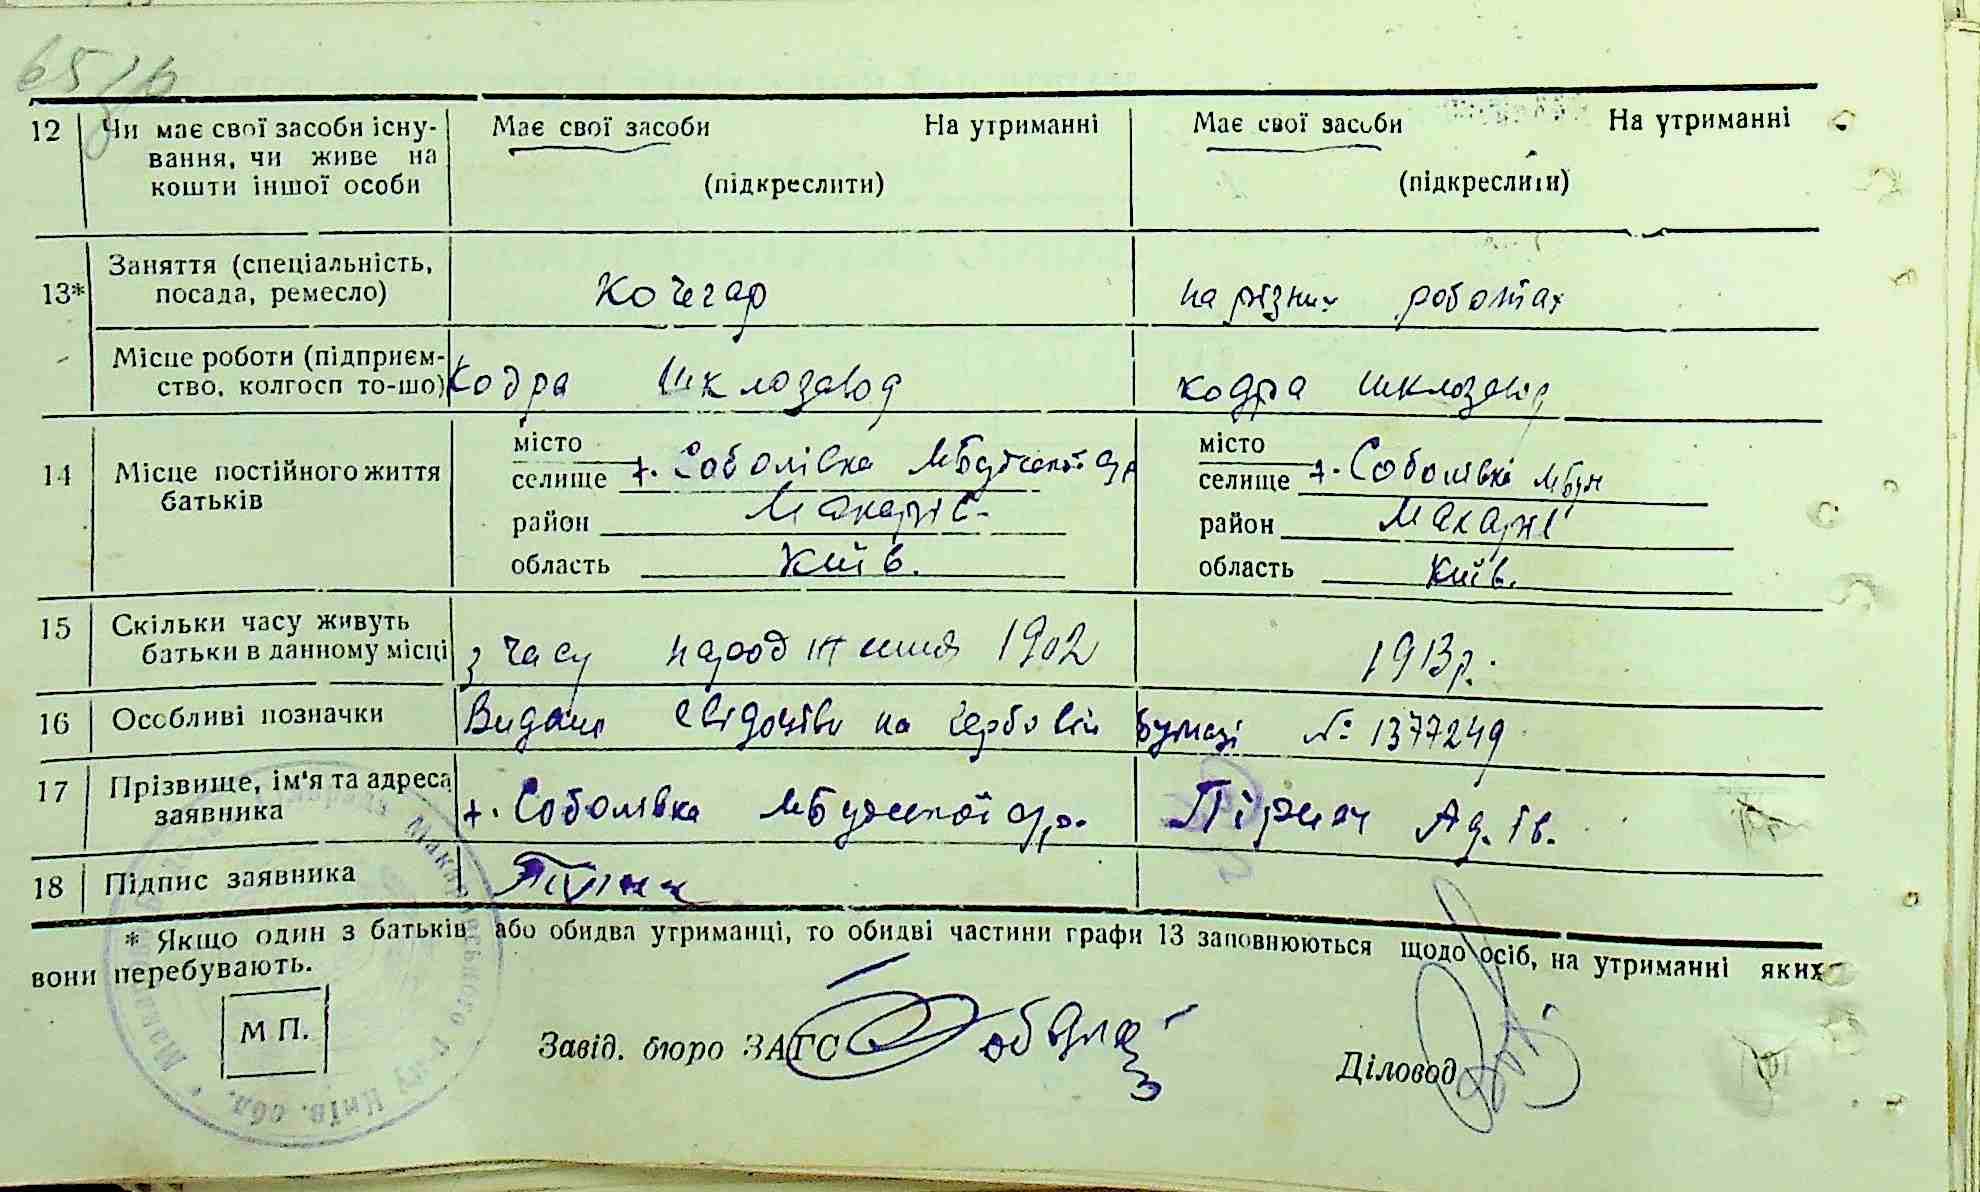 65
12 Чи має свої засоби існу- Має свої засоби На утриманні Має свої засоби На утриманні
вання, чи живе на
кошти іншої особи (підкреслити) (підкреслити)
13* Заняття (спеціальність,
посада, ремесло) Кочегар на різних роботах
Місце роботи (підприєм-
ство, колгосп то-що) Кодра Шклозавод кодра шклозавод
14 Місце постійного життя
батьків
місто місто
селище х. Соболівка селище х. Соболівка
район Макарів. район Макарів
область Київ. область Київ.
15 Скільки часу живуть
батьки в данному місці з часу народження 1902 1913 р.
16 Особливі позначки Видано свідоцтво на гербовій бумазі № 1377249
17 Прізвище, ім'я та адреса
заявника х. Соболівка Ад. Ів.
18 Підпис заявника
* Якщо один з батьків або обидва утриманці, то обидві частини графи 13 заповнюються щодо осіб, на утриманні яких
вони перебувають.
М П.
Завід. бюро ЗАГС
Діловод
Макарівського р-ну Київ. обл.